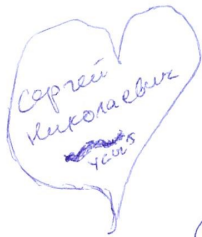 Сергей
Николаевич